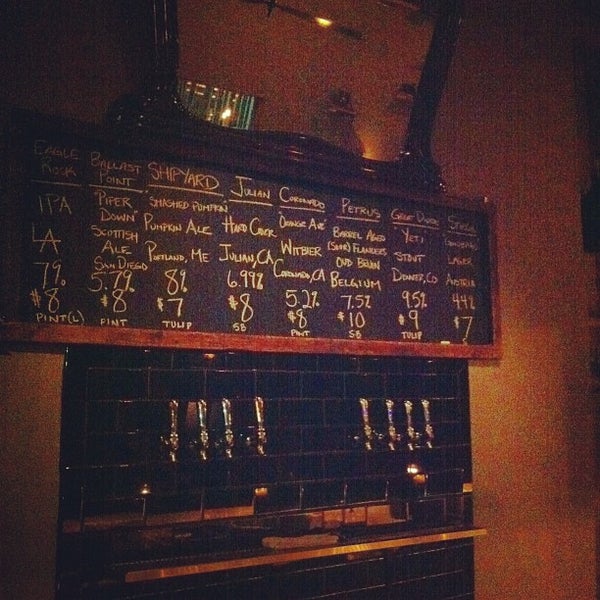 EAGLE
ROCK
IPA
LA
7%
$8
PINT(L)
BALLAST
POINT
"PIPER
DOWN"
SCOTTISH
ALE
SAN DIEGO
5.79%
$8
PINT
SHIPYARD
"SMASHED PUMPKIN"
PUMPKIN ALE
PORTLAND, ME
8%
$7
TULIP
JULIAN
HARD CIDER
JULIAN, CA
6.99%
$8
SB
CORONADO
"ORANGE AVE"
WITBIER
CORONADO, CA
5.2%
$8
PINT
PETRUS
BARREL AGED
(SOUR) FLANDERS
OUD BRUIN
BELGIUM
7.5%
$10
SB
GREAT DIVIDE
YETI
STOUT
DENVER, CO
9.5%
$9
TULIP
STIEGL
LAGER
AUSTRIA
4.4%
$7